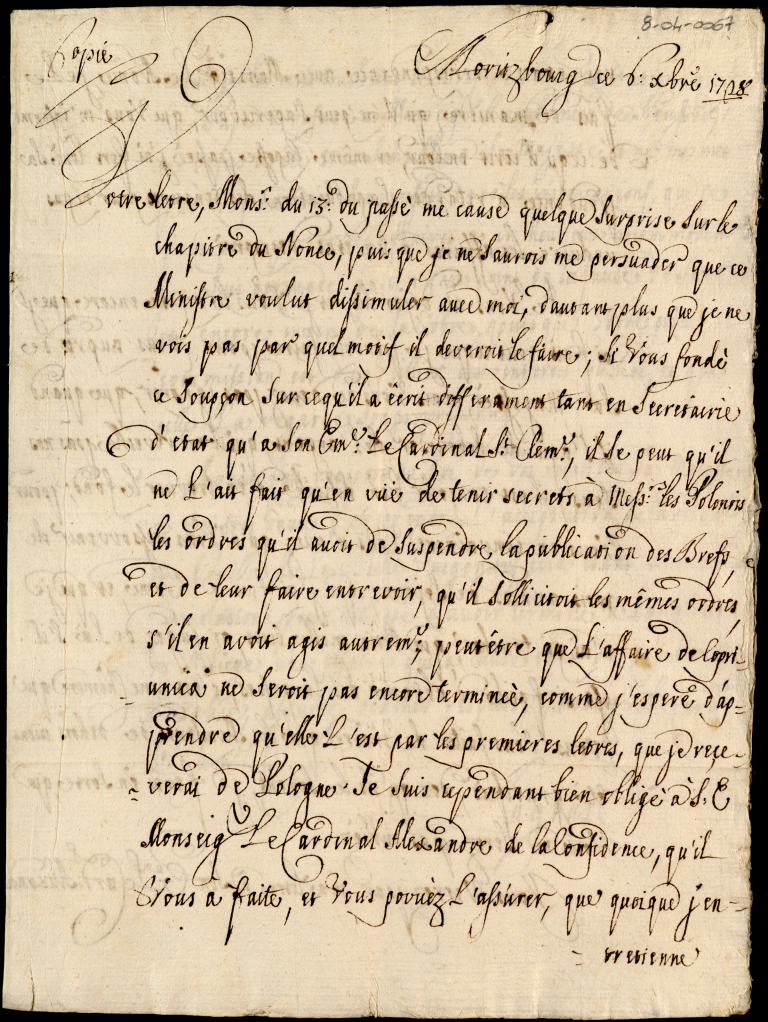 8-04-0067
Copie
Moritzbourg ce 6: xbre 1728
Vtre letre, Monsr. du 13e du passè me cause quelque surprise sur le
chapitre du Nonce, puis que je ne saurois me persuader que ce
Ministre voulut dissimuler avec moi, d'autant plus que je ne
vois pas par quel motif il deveroit le faire; si Vous fondè
ce soupçon sur ce qu'il a êcrit differament tant en Secretairie
d'etat qu'a Son Eme. Le Cardinal St. Clemt., il se peut qu'il
ne L'ait fait qu'en vüe de tenir secrets à Messrs. les Polonois
les ordres qu'il avoit de suspendre la publication des Brefs,
et de leur faire entrevoir, qu'il sollicitoit les mêmes ordres,
s'il en avoit agis autremt. peutêtre que L'affaire de Copri-
unica ne seroit pas encore terminèe, comme j'espere d'ap-
prendre qu'elle L'est par les premieres letres, que je reçe-
-verai de Pologne. Je suis cependant bien obligè à S. E
Monseigr. Le Cardinal Alexandre de la Confidence, qu'il
Vous à faite, et Vous povuèz L'assûrer, que quoique j'en-
-tretienne